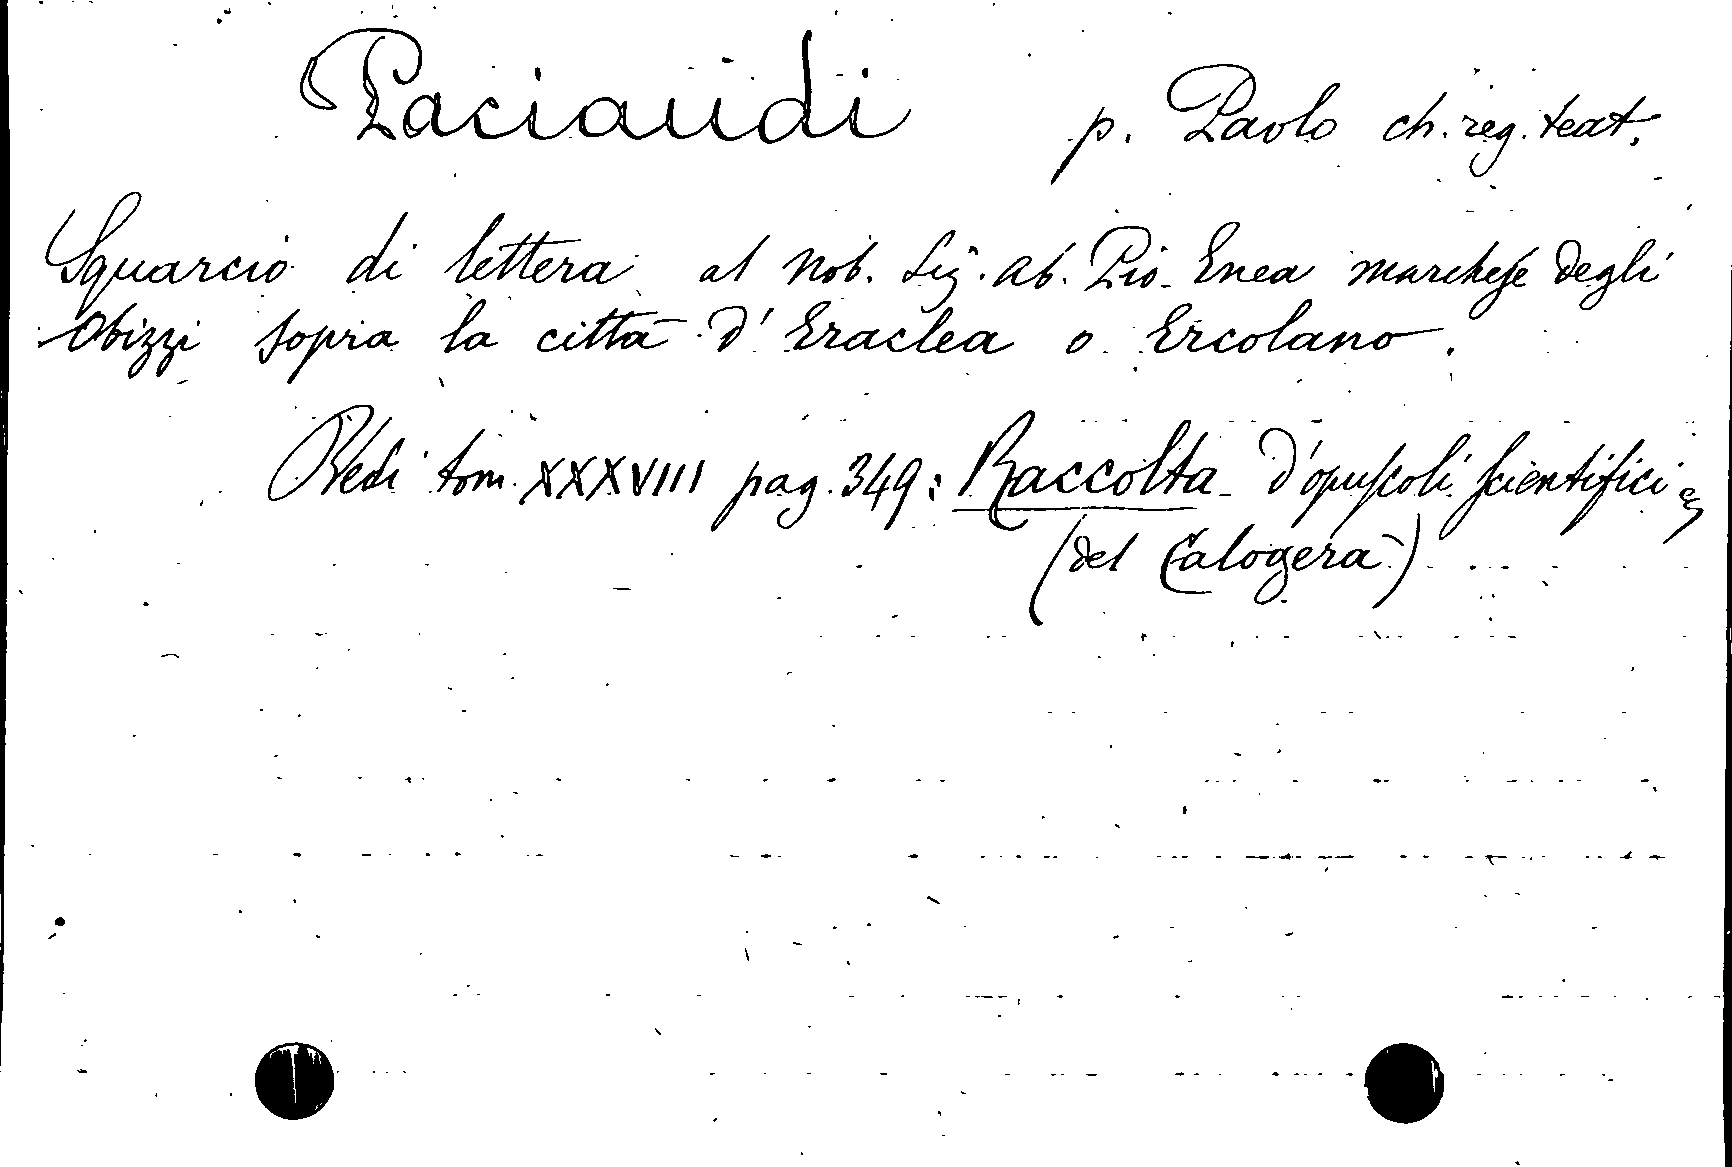 Paciaudi p. Paolo ch. reg. teat.
Squarcio di lettera al Nob. Sig. Ab. Pio Enea marchese degli
Obizzi sopra la città d' Eraclea o Ercolano.
Vedi tom. XXXVIII pag. 349: Raccolta d'opuscoli scientifici
(del Calogerà)